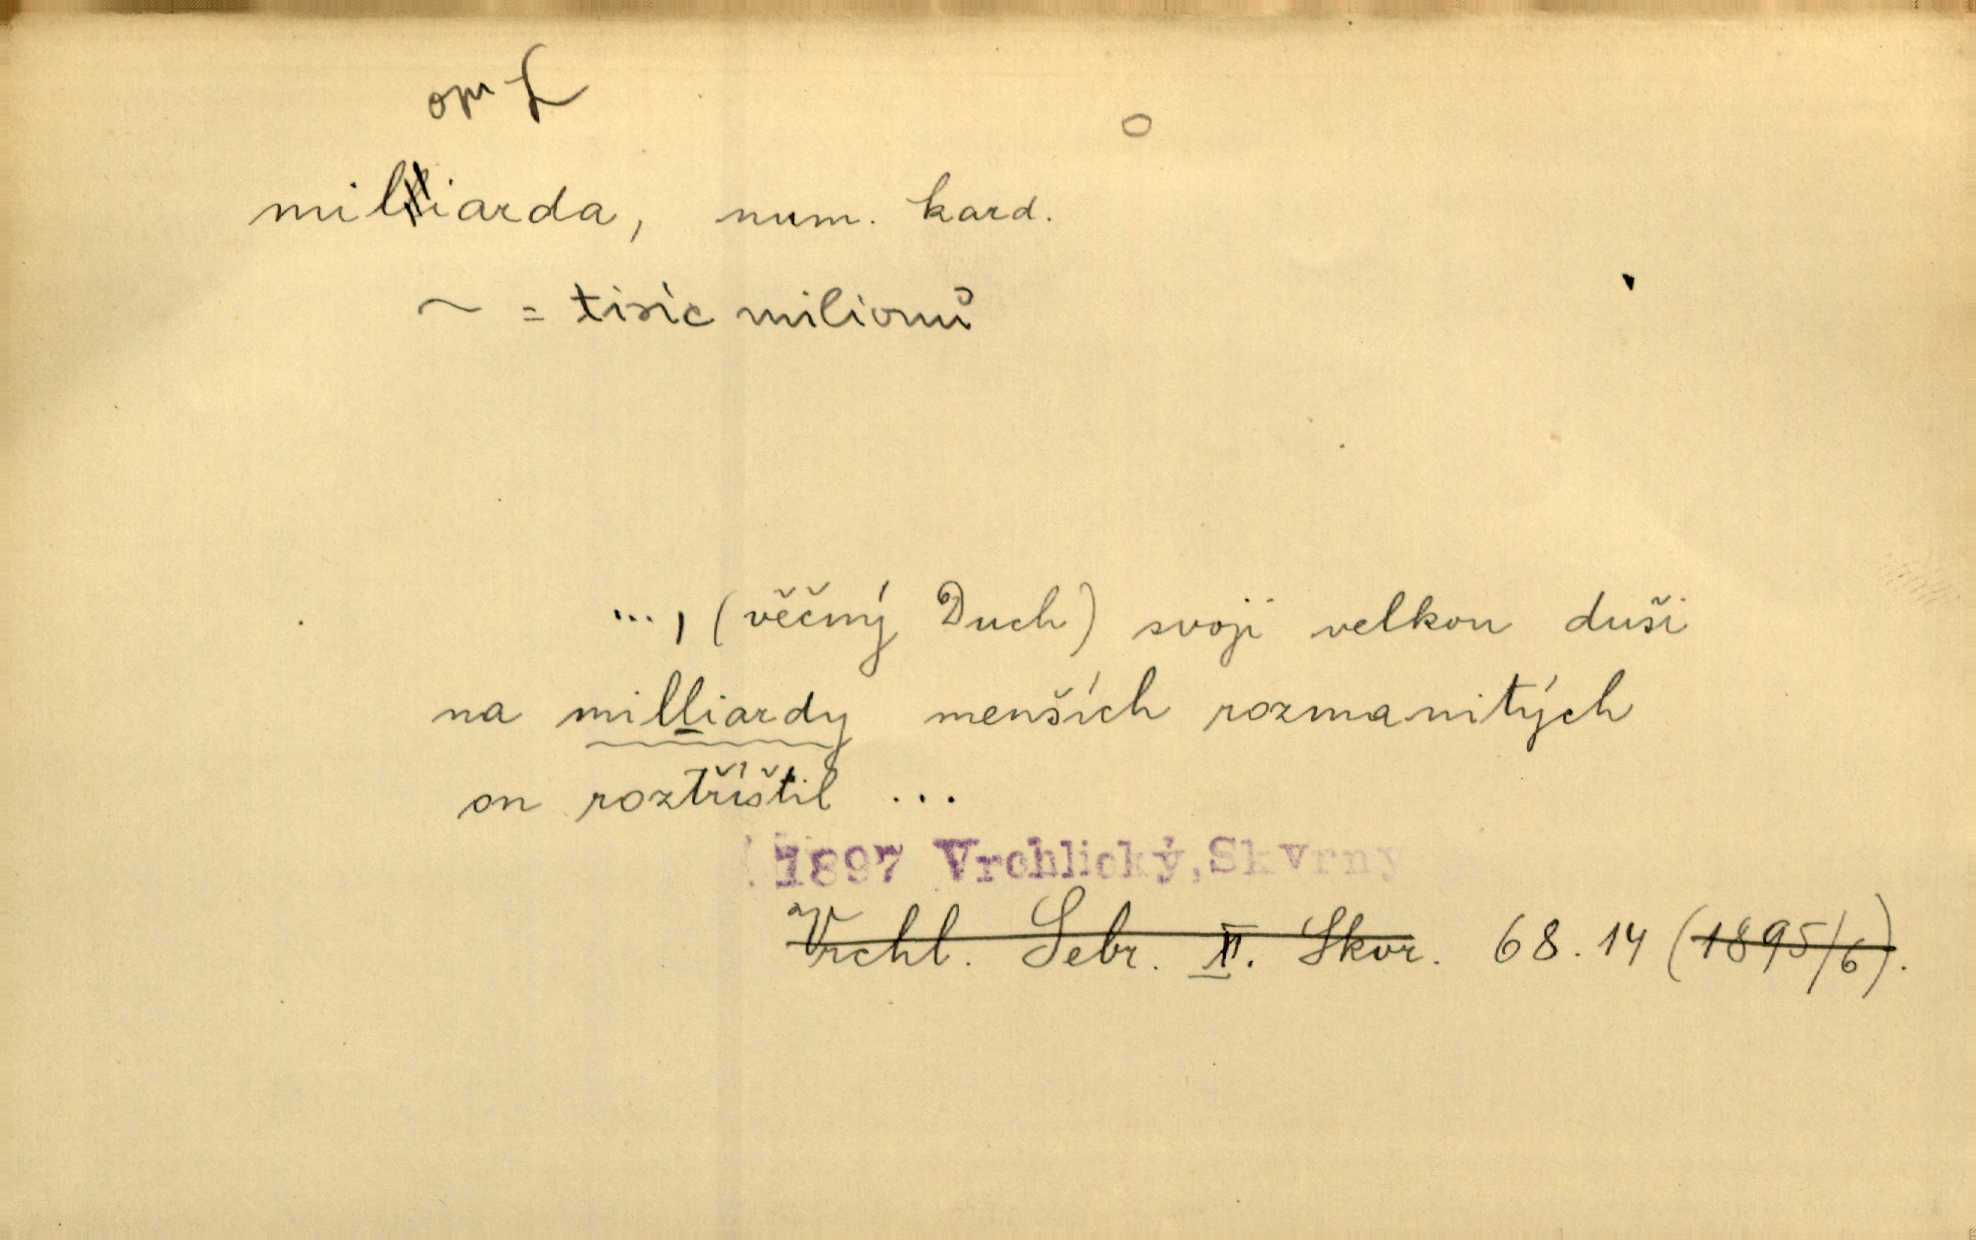 opr L
milliarda, num. kard.
~ = tisíc milionů
..., (věčný Duch) svoji velkou duši
na milliardy menších rozmanitých
on roztříštil ...
1897 Vrchlický, Skvrny
Vrchl. Sebr. II. Skvr. 68.14 (1895/6).